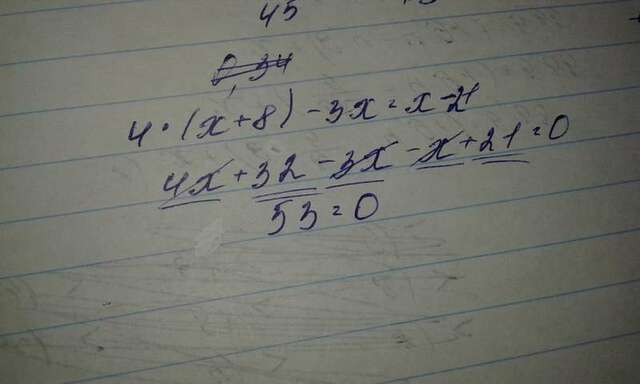 45
4·(x+8)-3x=x-21
4x+32-3x-x+21=0
53=0